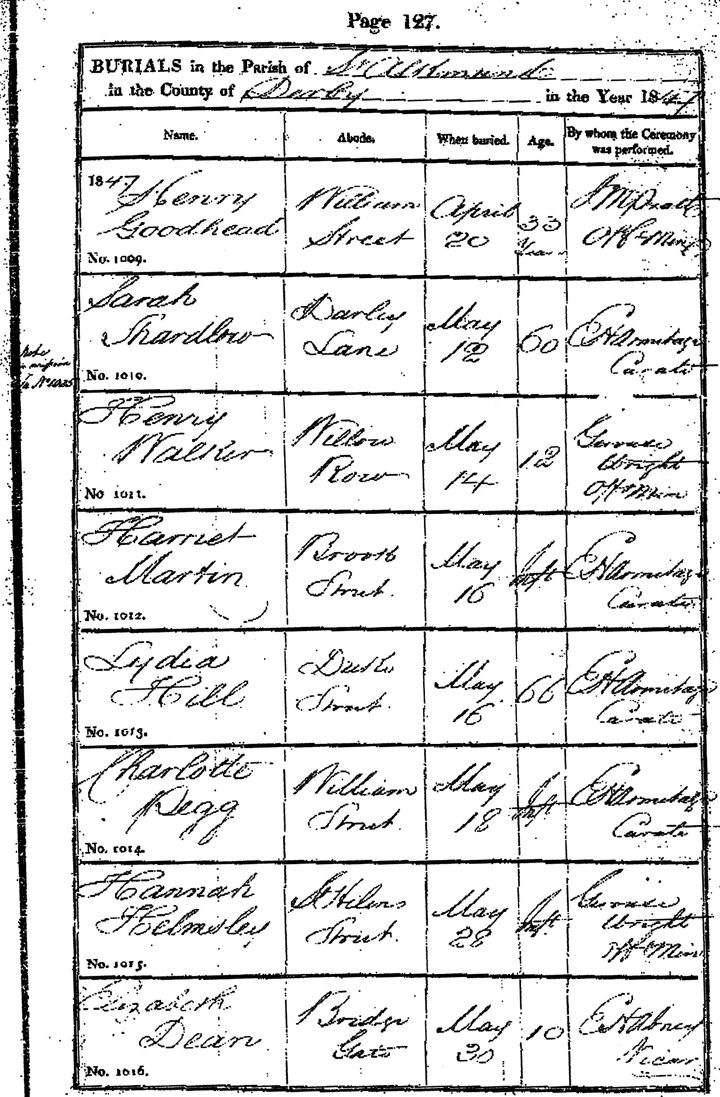 Page 127.
BURIALS in the Parish of St Alkmund
in the County of Derby in the Year 1847
Name. Abode. When buried. Age. By whom the Ceremony was performed.
1847 Henry William April 33
Goodhead Street 20 Years Off Min
No. 1009.
Sarah Darley May 60 EHArmitage
Shardlow Lane 12 Curate
No. 1010.
Henry Willow May 12 Gervase
Walker Row 14 Wright
No 1011. Off Min
Harriet Brook May Inft EHArmitage
Martin Street 16 Curate
No. 1012.
Lydia Duke May 66 EHArmitage
Hill Street 16 Curate
No. 1013.
Charlotte William May Inft EHArmitage
Pegg Street 18 Curate
No. 1014.
Hannah St Helens May Inft Gervase
Helmsley Street 28 Wright
No. 1015. Off Min
Elizabeth Bridge May 10 EHAbney
Dean Gate 30 Vicar
No. 1016.